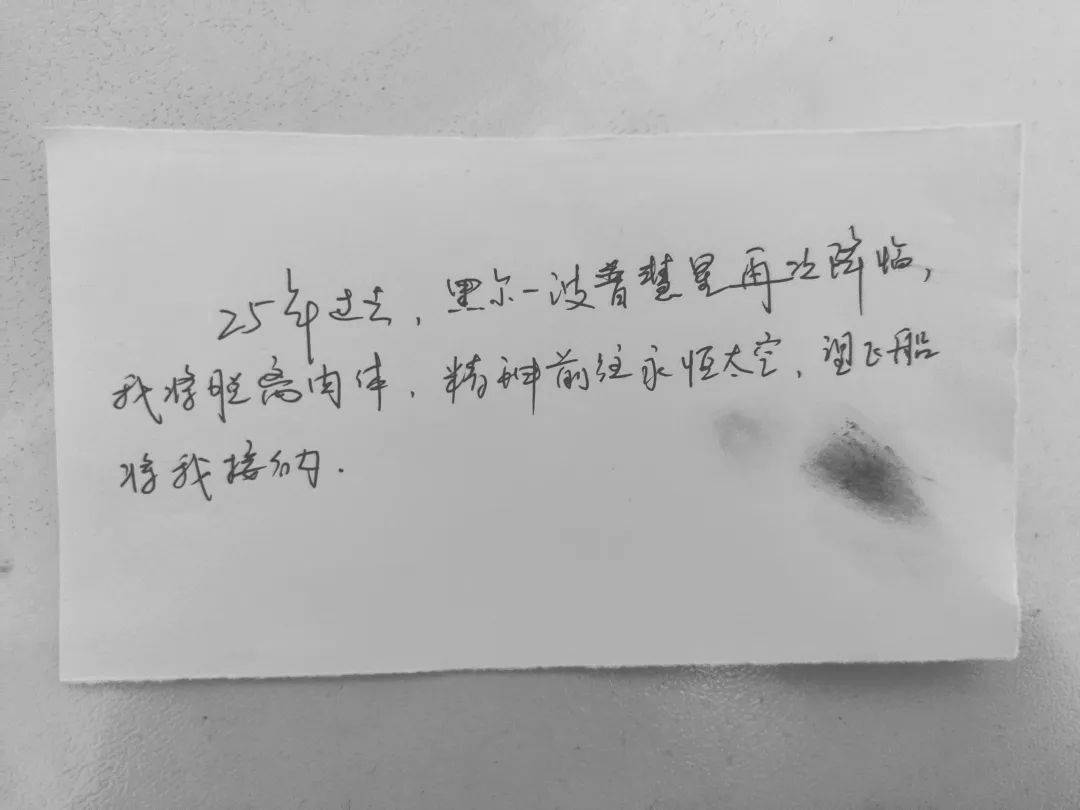 25年过去，黑尔-波普慧星再次降临，
我将脱离肉体，精神前往永恒太空，望飞船
将我接纳.